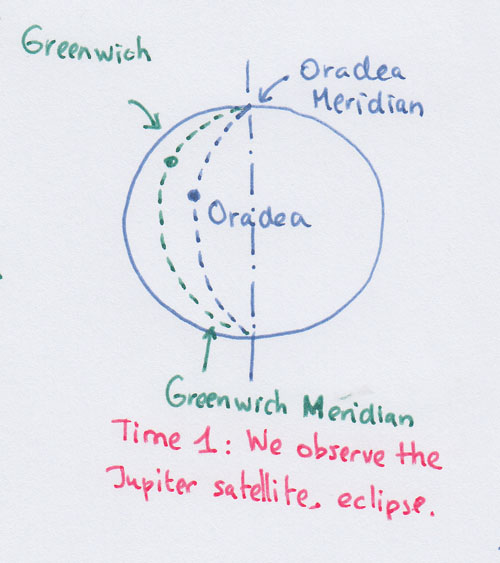 Greenwich
Oradea
Meridian
Oradea
Greenwich Meridian
Time 1: We observe the
Jupiter satellite, eclipse.